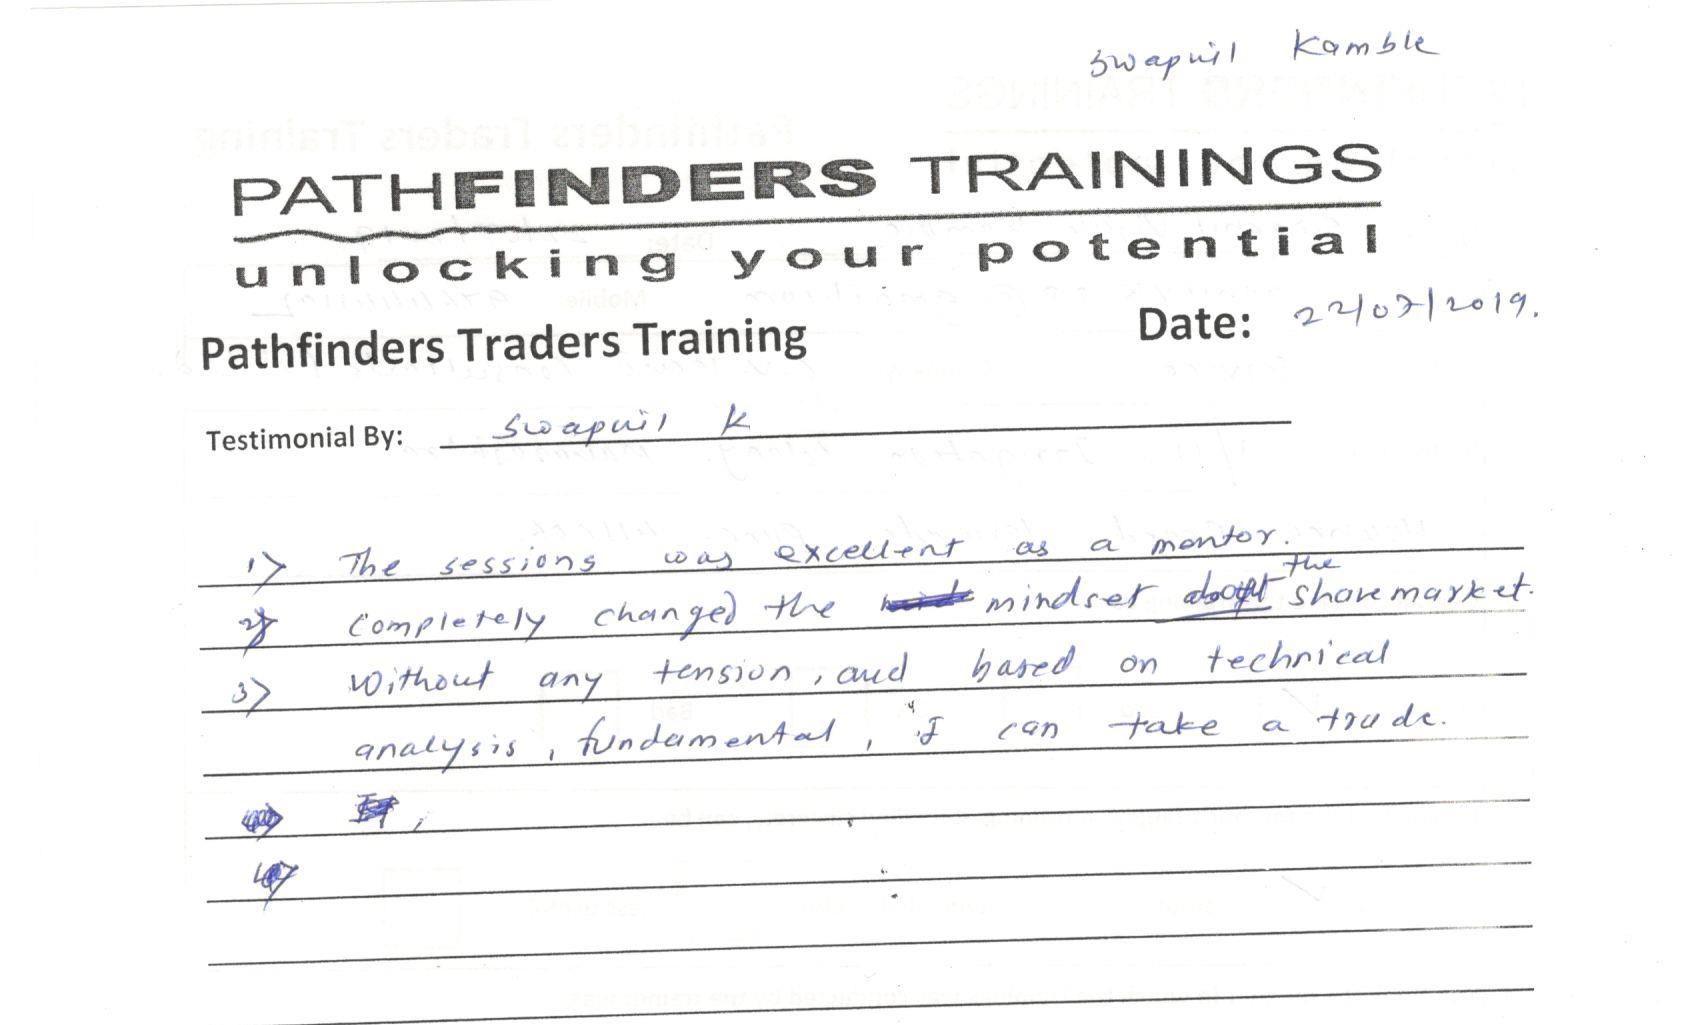 Swapnil Kamble
PATHFINDERS TRAININGS
unlocking your potential
Pathfinders Traders Training
Date: 22/07/2019.
Testimonial By: Swapnil K
1) The sessions was excellent as a mentor.
2) Completely changed the mindset about the sharemarket.
3) Without any tension, and based on technical
analysis, fundamental, I can take a trade.